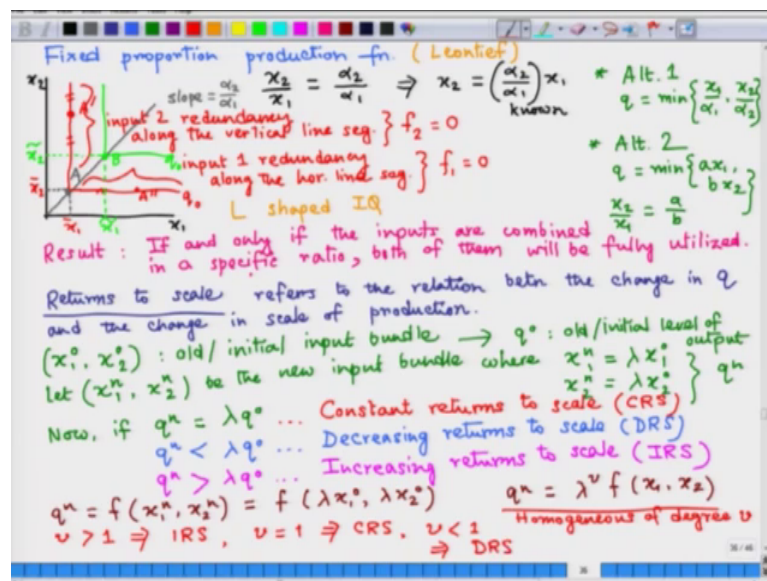 Fixed proportion production fn. (Leontief)
x₂
slope = α₂/α₁
x₂/x₁ = α₂/α₁ ⇒ x₂ = (α₂/α₁) x₁
known
* Alt. 1
q = min{x₁/α₁, x₂/α₂}
input 2 redundancy
along the vertical line seg. } f₂ = 0
* Alt. 2
q = min{ax₁, bx₂}
x₂/x₁ = a/b
input 1 redundancy
along the hor. line seg. } f₁ = 0
A'
B
A
A"
q₀
x₁
L shaped IQ
Result : If and only if the inputs are combined
in a specific ratio, both of them will be fully utilized.
Returns to scale refers to the relation betn the change in q
and the change in scale of production.
(x₁⁰, x₂⁰) : old/ initial input bundle → q⁰ : old/initial level of output
let (x₁ⁿ, x₂ⁿ) be the new input bundle where x₁ⁿ = λx₁⁰
x₂ⁿ = λx₂⁰ } qⁿ
Now, if qⁿ = λq⁰ ... Constant returns to scale (CRS)
qⁿ < λq⁰ ... Decreasing returns to scale (DRS)
qⁿ > λq⁰ ... Increasing returns to scale (IRS)
qⁿ = f(x₁ⁿ, x₂ⁿ) = f(λx₁⁰, λx₂⁰)
qⁿ = λᵛ f(x₁, x₂)
Homogeneous of degree ν
ν > 1 ⇒ IRS, ν = 1 ⇒ CRS, ν < 1
⇒ DRS
36/46
36